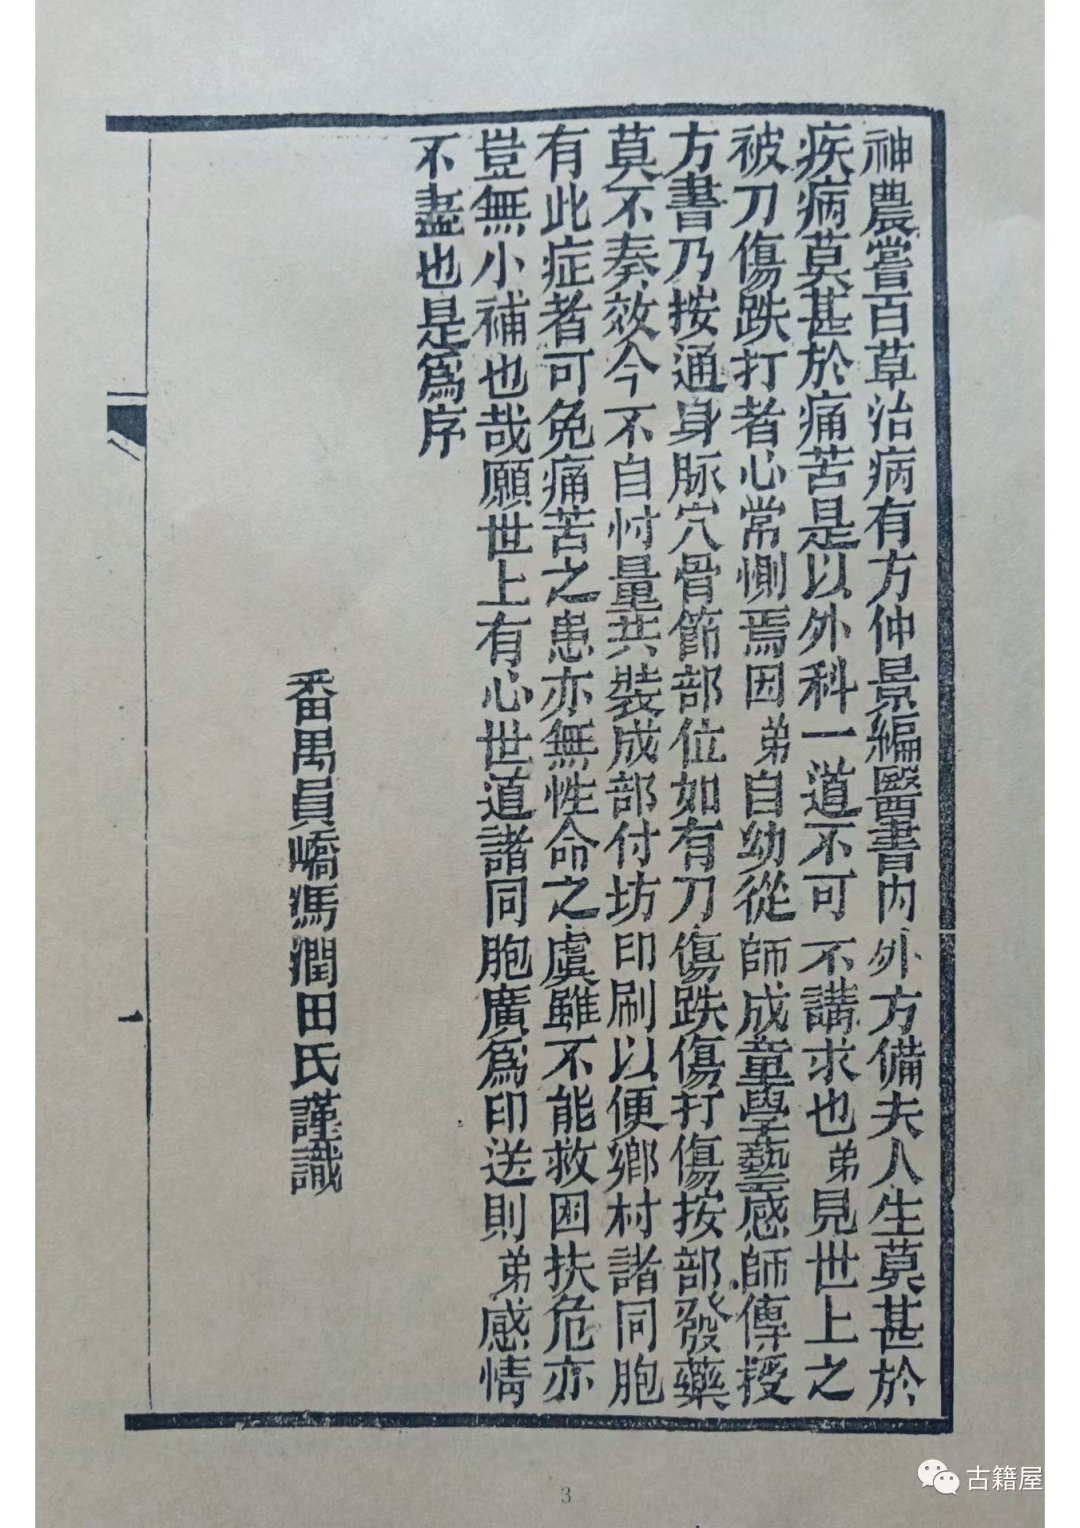 神農嘗百草治病有方仲景編醫書內外方備夫人生莫甚於
疾病莫甚於痛苦是以外科一道不可不講求也弟見世上之
被刀傷跌打者心常惻焉因弟自幼從師成童學藝感師傳授
方書乃按通身脉穴骨節部位如有刀傷跌傷打傷按部發藥
莫不奏效今不自忖量共裝成部付坊印刷以便鄉村諸同胞
有此症者可免痛苦之患亦無性命之虞雖不能救困扶危亦
豈無小補也哉願世上有心世道諸同胞廣為印送則弟感情
不盡也是為序
番禺員嶠馮潤田氏謹識
3
古籍屋